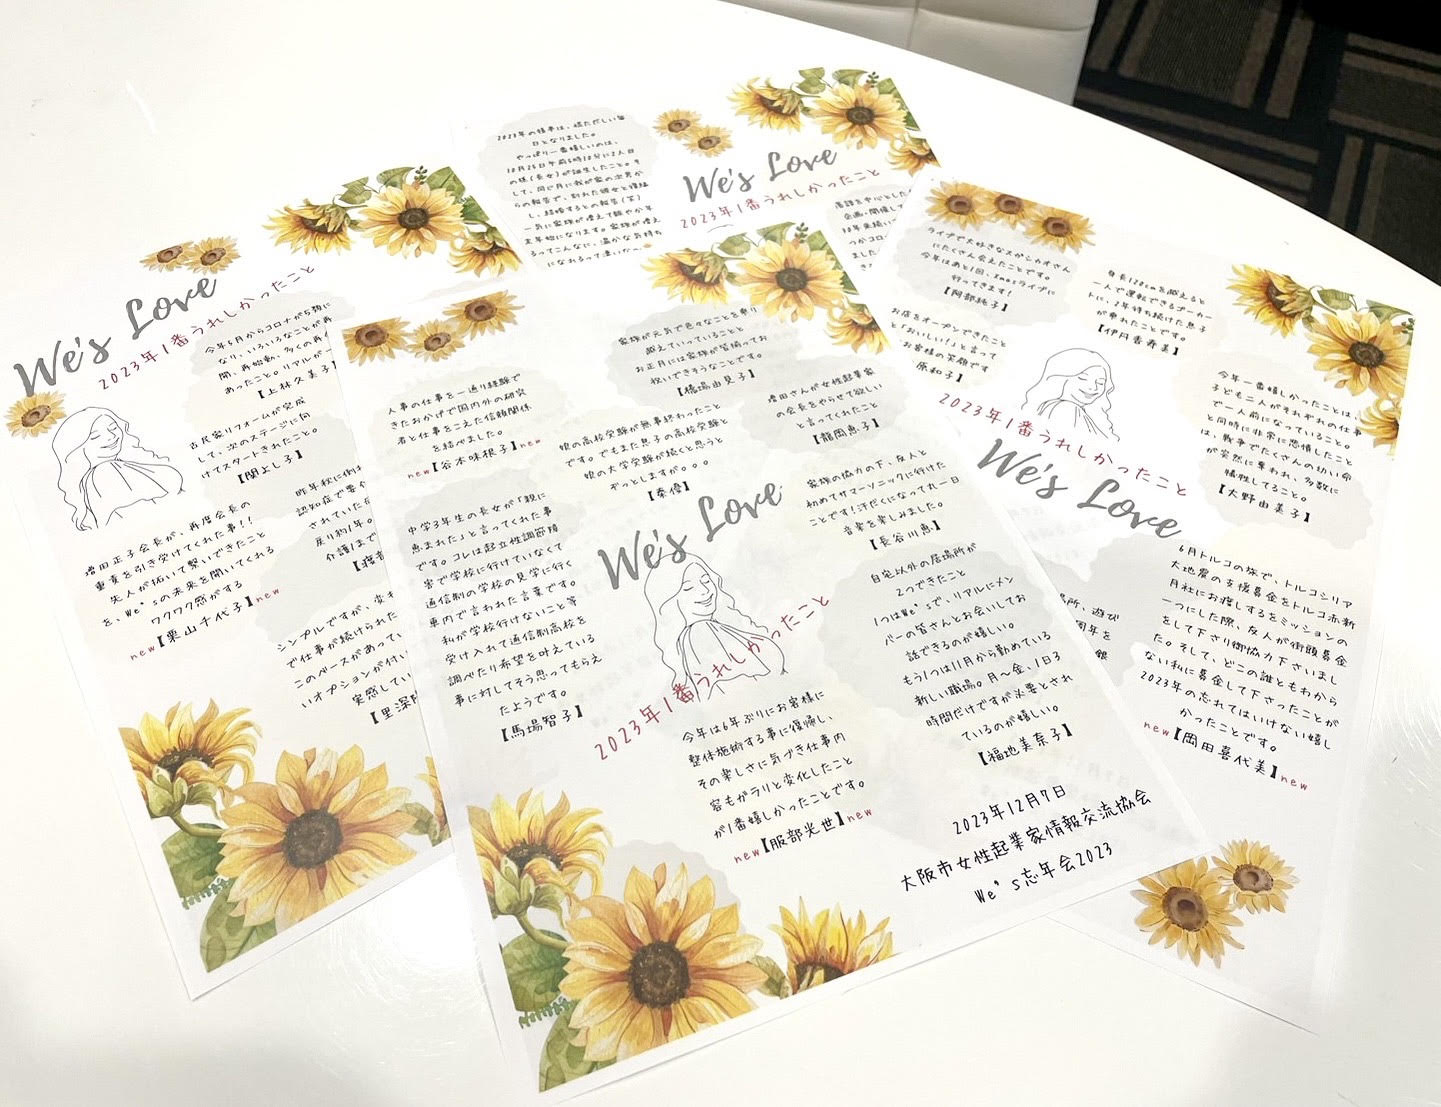 2023年の猪年は、慌ただしい毎
日となりました。
やっぱり一番嬉しいのは、
して、同じ月に我が家の次男か
らの報告で、別れた彼女と復縁
し、結婚するとの報告(笑)
一気に家族が増えて賑やか年
末年始になります。家族が増え
るってこんなに、温かな気持ち
We's Love
2023年1番うれしかったこと
落語を中心とした
企画・開催して
10年来続い
つかコロ
ました
We's Love
2023年1番うれしかったこと
今年5月からコロナが5類に
なり、いろいろなことが再
開、再始動。多くの再
あったこと。リアルが一
【上林久美子】
古民家リフォームが完成
して、次のステージに向
けてスタートきれたこと。
【関よし子】
昨年秋に倒れ
認知症で要介
されていた
戻り約1年。
介護1まで
増田正子会長が、再度会長の
重責を引き受けてくれた事!!
先人が拓いて繋いできたこと
を、We'sの未来を開いてくれる
ワクワク感がする
new【栗山千代子】new
シンプルですが、変わ
で仕事が続けられた
このベースがあって
いオプションが付い
実感してい
人事の仕事を一通り経験で
きたおかげで国内外の研究
者と仕事をこえた信頼関係
を結べました。
new【谷本味根子】new
中学3年生の長女が「親に
恵まれた」と言ってくれた事
です。コレは起立性調節障
害で学校に行けていなくて
通信制の学校の見学に行く
車内で言われた言葉です。
私が学校行けないこと等
受け入れて通信制高校を
調べたり希望を叶えている
事に対してそう思ってもらえ
たようです。
【馬場智子】
家族が元気で色々なことを乗り
越えていっていることと
お正月には家族が皆揃ってお
祝いできそうなことです。
【橋場由見子】
娘の高校受験が無事終わったこと
です。でもまた息子の高校受験と
娘の大学受験が続くと思うと
ぞっとしますが。。。
【秦優】
増田さんが女性起業家
の会長をやらせて欲しい
と言ってくれたこと
【龍岡恵子】
We's Love
2023年1番うれしかったこと
家族の協力の下、友人と
初めてサマーソニックに行けた
ことです!汗だくになって丸一日
音楽を楽しみました。
【長谷川恵】
自宅以外の居場所が
2つできたこと
1つはWe'sで、リアルにメン
バーの皆さんとお会いしてお
話できるのが嬉しい。
もう1つは11月から勤めている
新しい職場。月～金、1日3
時間だけですが必要とされ
ているのが嬉しい。
【福地美奈子】
今年は6年ぶりにお客様に
整体施術する事に復帰し、
その楽しさに気づき仕事内
容もガラリと変化したこと
が1番嬉しかったことです。
new【服部光世】new
2023年12月7日
大阪市女性起業家情報交流協会
We's忘年会2023
ライブで大好きなスガシカオさん
にたくさん会えたことです。
今年はあと1回、Xmasライブに
行ってきます!
【阿部純子】
お店をオープンできたこと
と「おいしい!」と言って
お客様の笑顔です
原和子】
身長120cmを越えると
一人で運転できるゴーカー
トに、2年待ち続けた息子
が乗れたことです。
【伊丹香寿美】
2023年1番うれしかったこと
We's Love
今年一番嬉しかったことは、
子ども二人がそれぞれの仕事
で一人前になっていること。
と同時に非常に悲惜したこと
は、戦争でたくさんの幼い命
が突然に奪われ、多数に
犠牲してること。
【大野由美子】
6月トルコの旅で、トルコシリア
大地震の支援募金をトルコ赤新
月社にお渡しするをミッションの
一つにした際、友人が街頭募金
をして下さり御協力下さいまし
た。そして、どこの誰ともわから
ない私に募金して下さったことが
2023年の忘れてはいけない嬉し
かったことです。
new【岡田喜代美】new